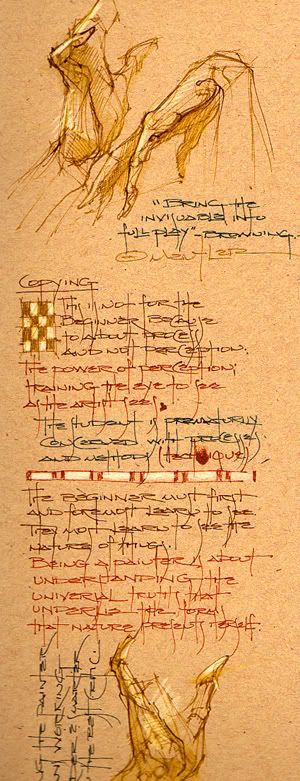 "Bring the
invisuable into
full play" - Browning.
Mentler
Copying
This is not for the
beginner because
to about process
and not perception.
The power of perception;
training the eye to see
as the artist sees.
The student is prematurly
concerned with processes
and method (technique)
The beginner must first
and foremost learn to see
They must learn to see the
nature of things.
Being a painter is about
understanding the
universal truths that
underlie the forms
that nature presents itself.
the painter
working